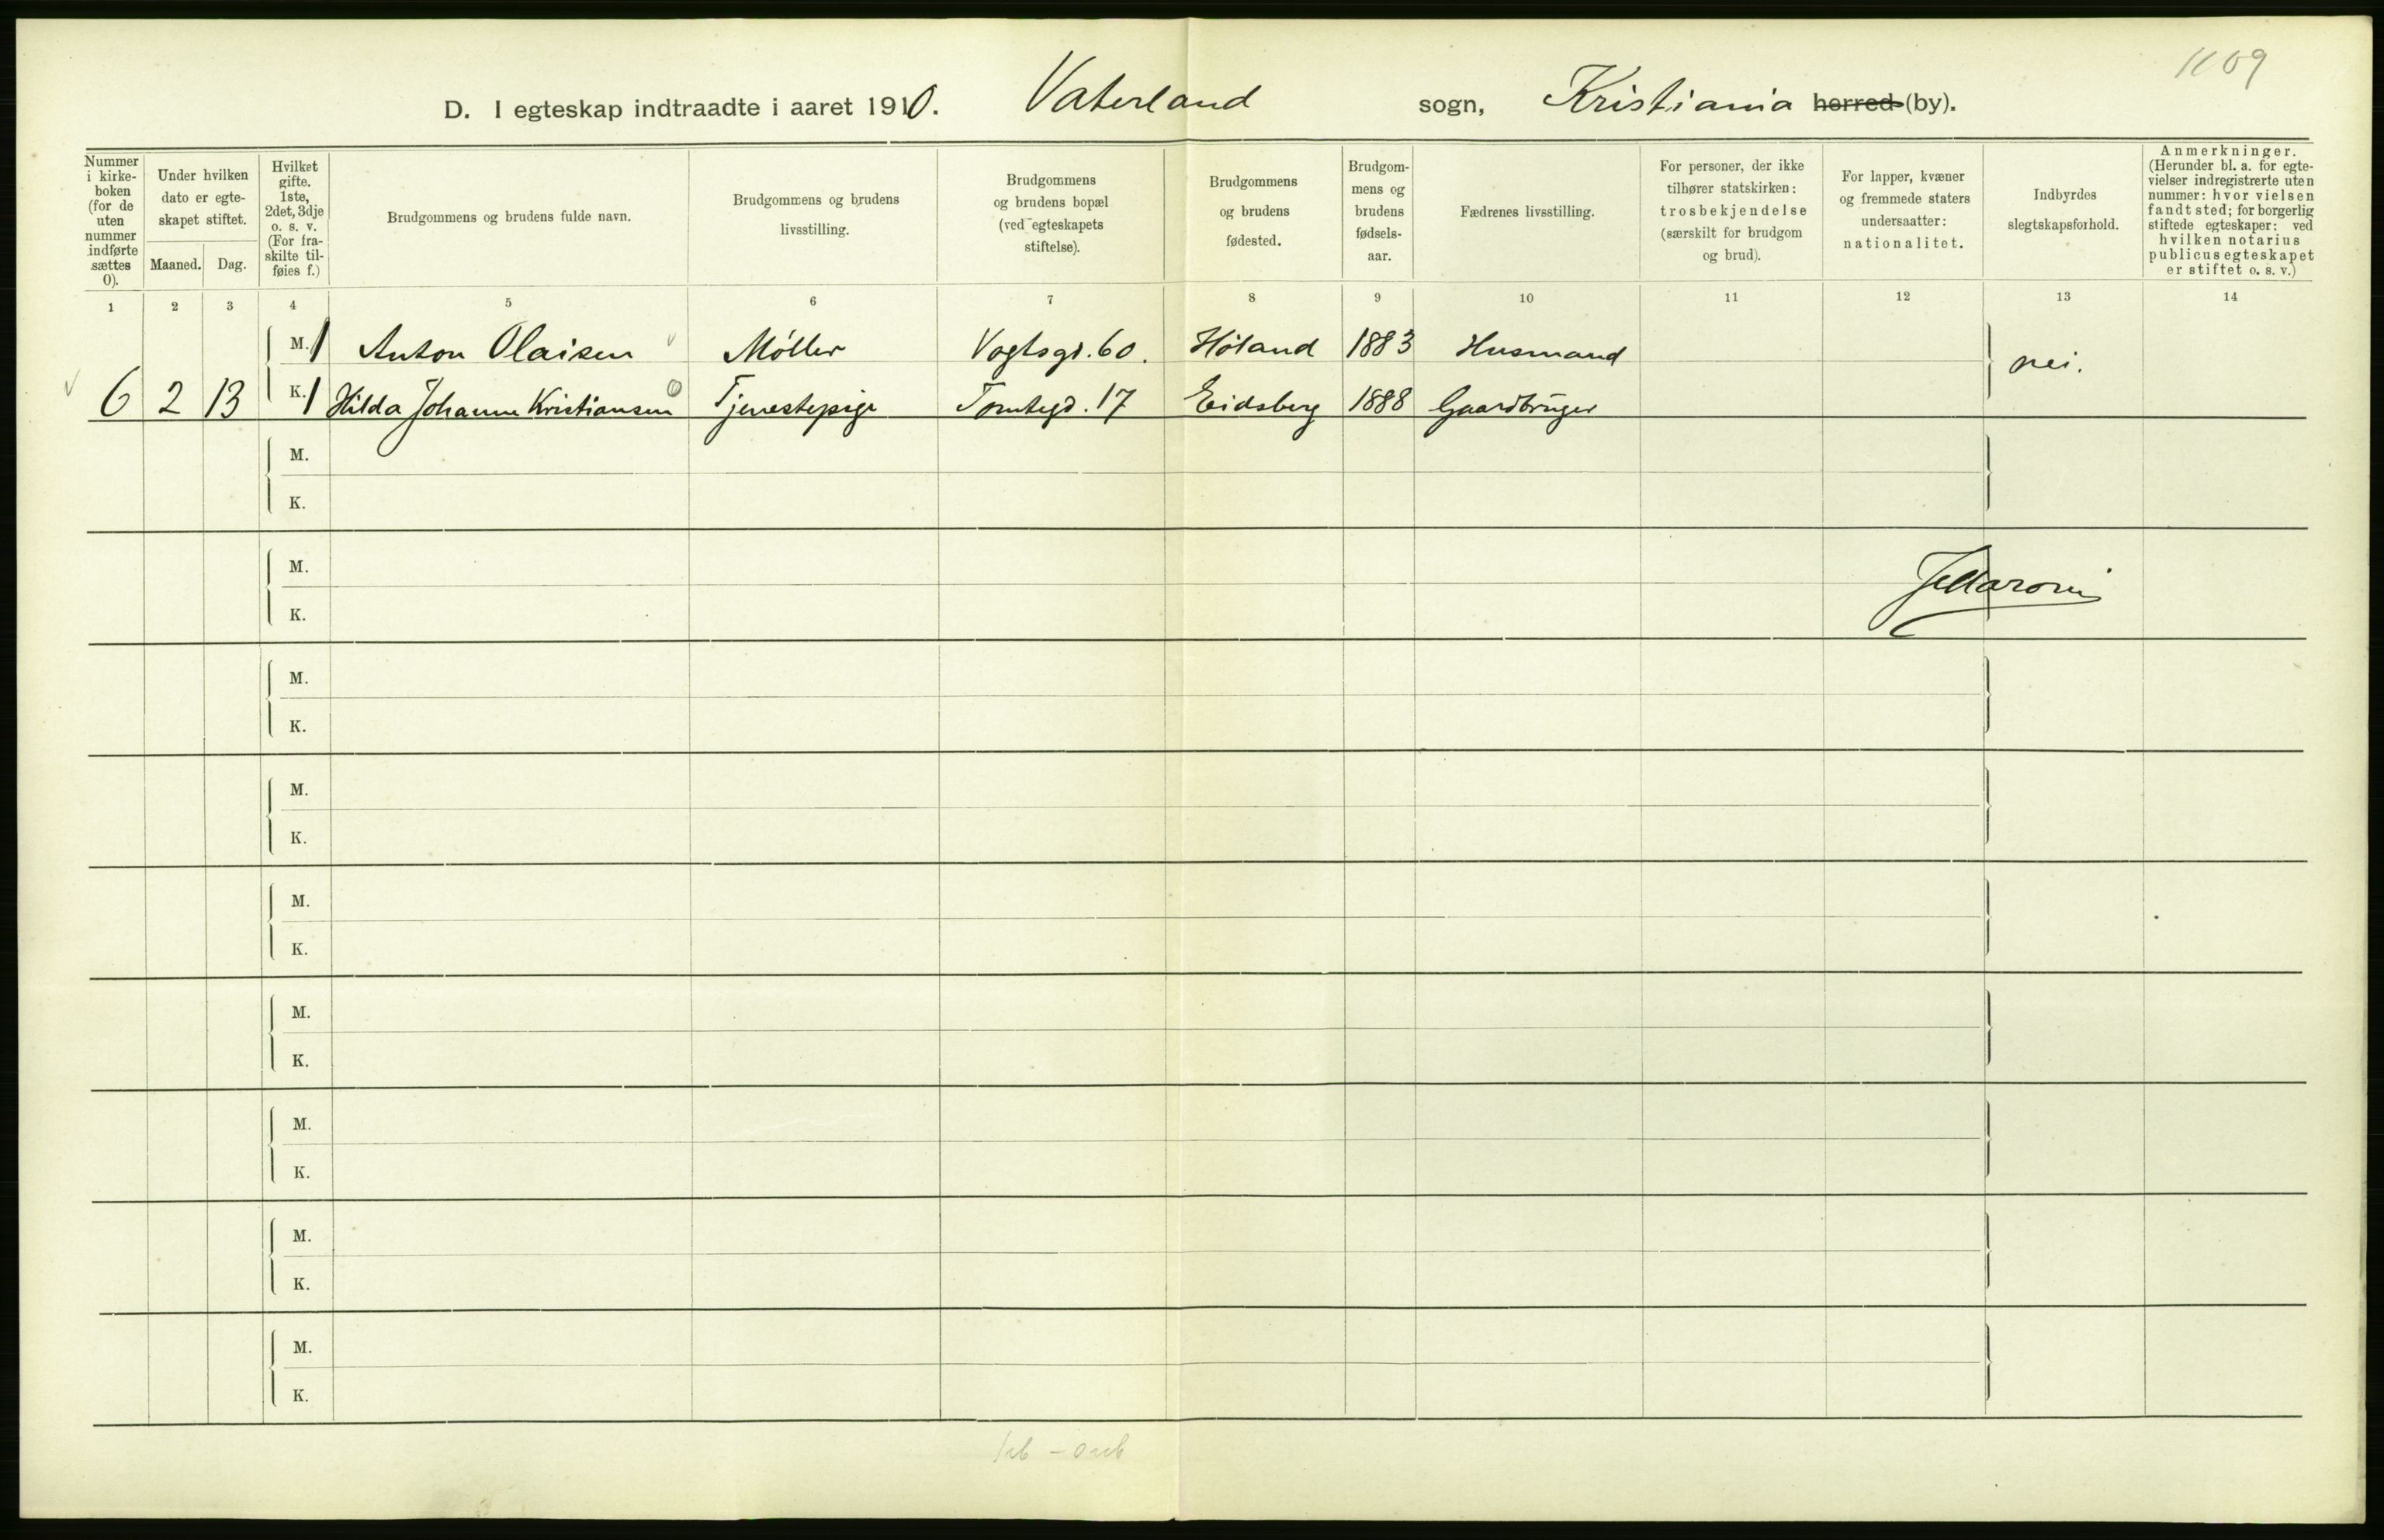 1109
D. I egteskap indtraadte i aaret 1910. Vaterland sogn, Kristiania herred (by).
Nummer i kirkeboken (for de uten nummer indførte sættes 0).
Under hvilken dato er egteskapet stiftet.
Maaned. Dag.
Hvilket gifte. 1ste, 2det, 3dje o. s. v. (For fraskilte tilføies f.)
Brudgommens og brudens fulde navn.
Brudgommens og brudens livsstilling.
Brudgommens og brudens bopæl (ved egteskapets stiftelse).
Brudgommens og brudens fødested.
Brudgommens og brudens fødselsaar.
Fædrenes livsstilling.
For personer, der ikke tilhører statskirken: trosbekjendelse (særskilt for brudgom og brud).
For lapper, kvæner og fremmede staters undersaatter: nationalitet.
Indbyrdes slegtskapsforhold.
Anmerkninger. (Herunder bl. a. for egtevielser indregistrerte uten nummer: hvor vielsen fandt sted; for borgerlig stiftede egteskaper: ved hvilken notarius publicus egteskapet er stiftet o. s. v.)
1 2 3 4 5 6 7 8 9 10 11 12 13 14
M. 1 Anton Olaisen Møller Vogtsgd. 60. Høland 1883 Husmand nei.
6 2 13 K. 1 Hilda Johanne Kristiansen Tjenestepige Tomtegd. 17 Eidsberg 1888 Gaardbruger
M.
K.
M.
K.
M.
K.
M.
K.
M.
K.
M.
K.
M.
K.
M.
K.
M.
K.